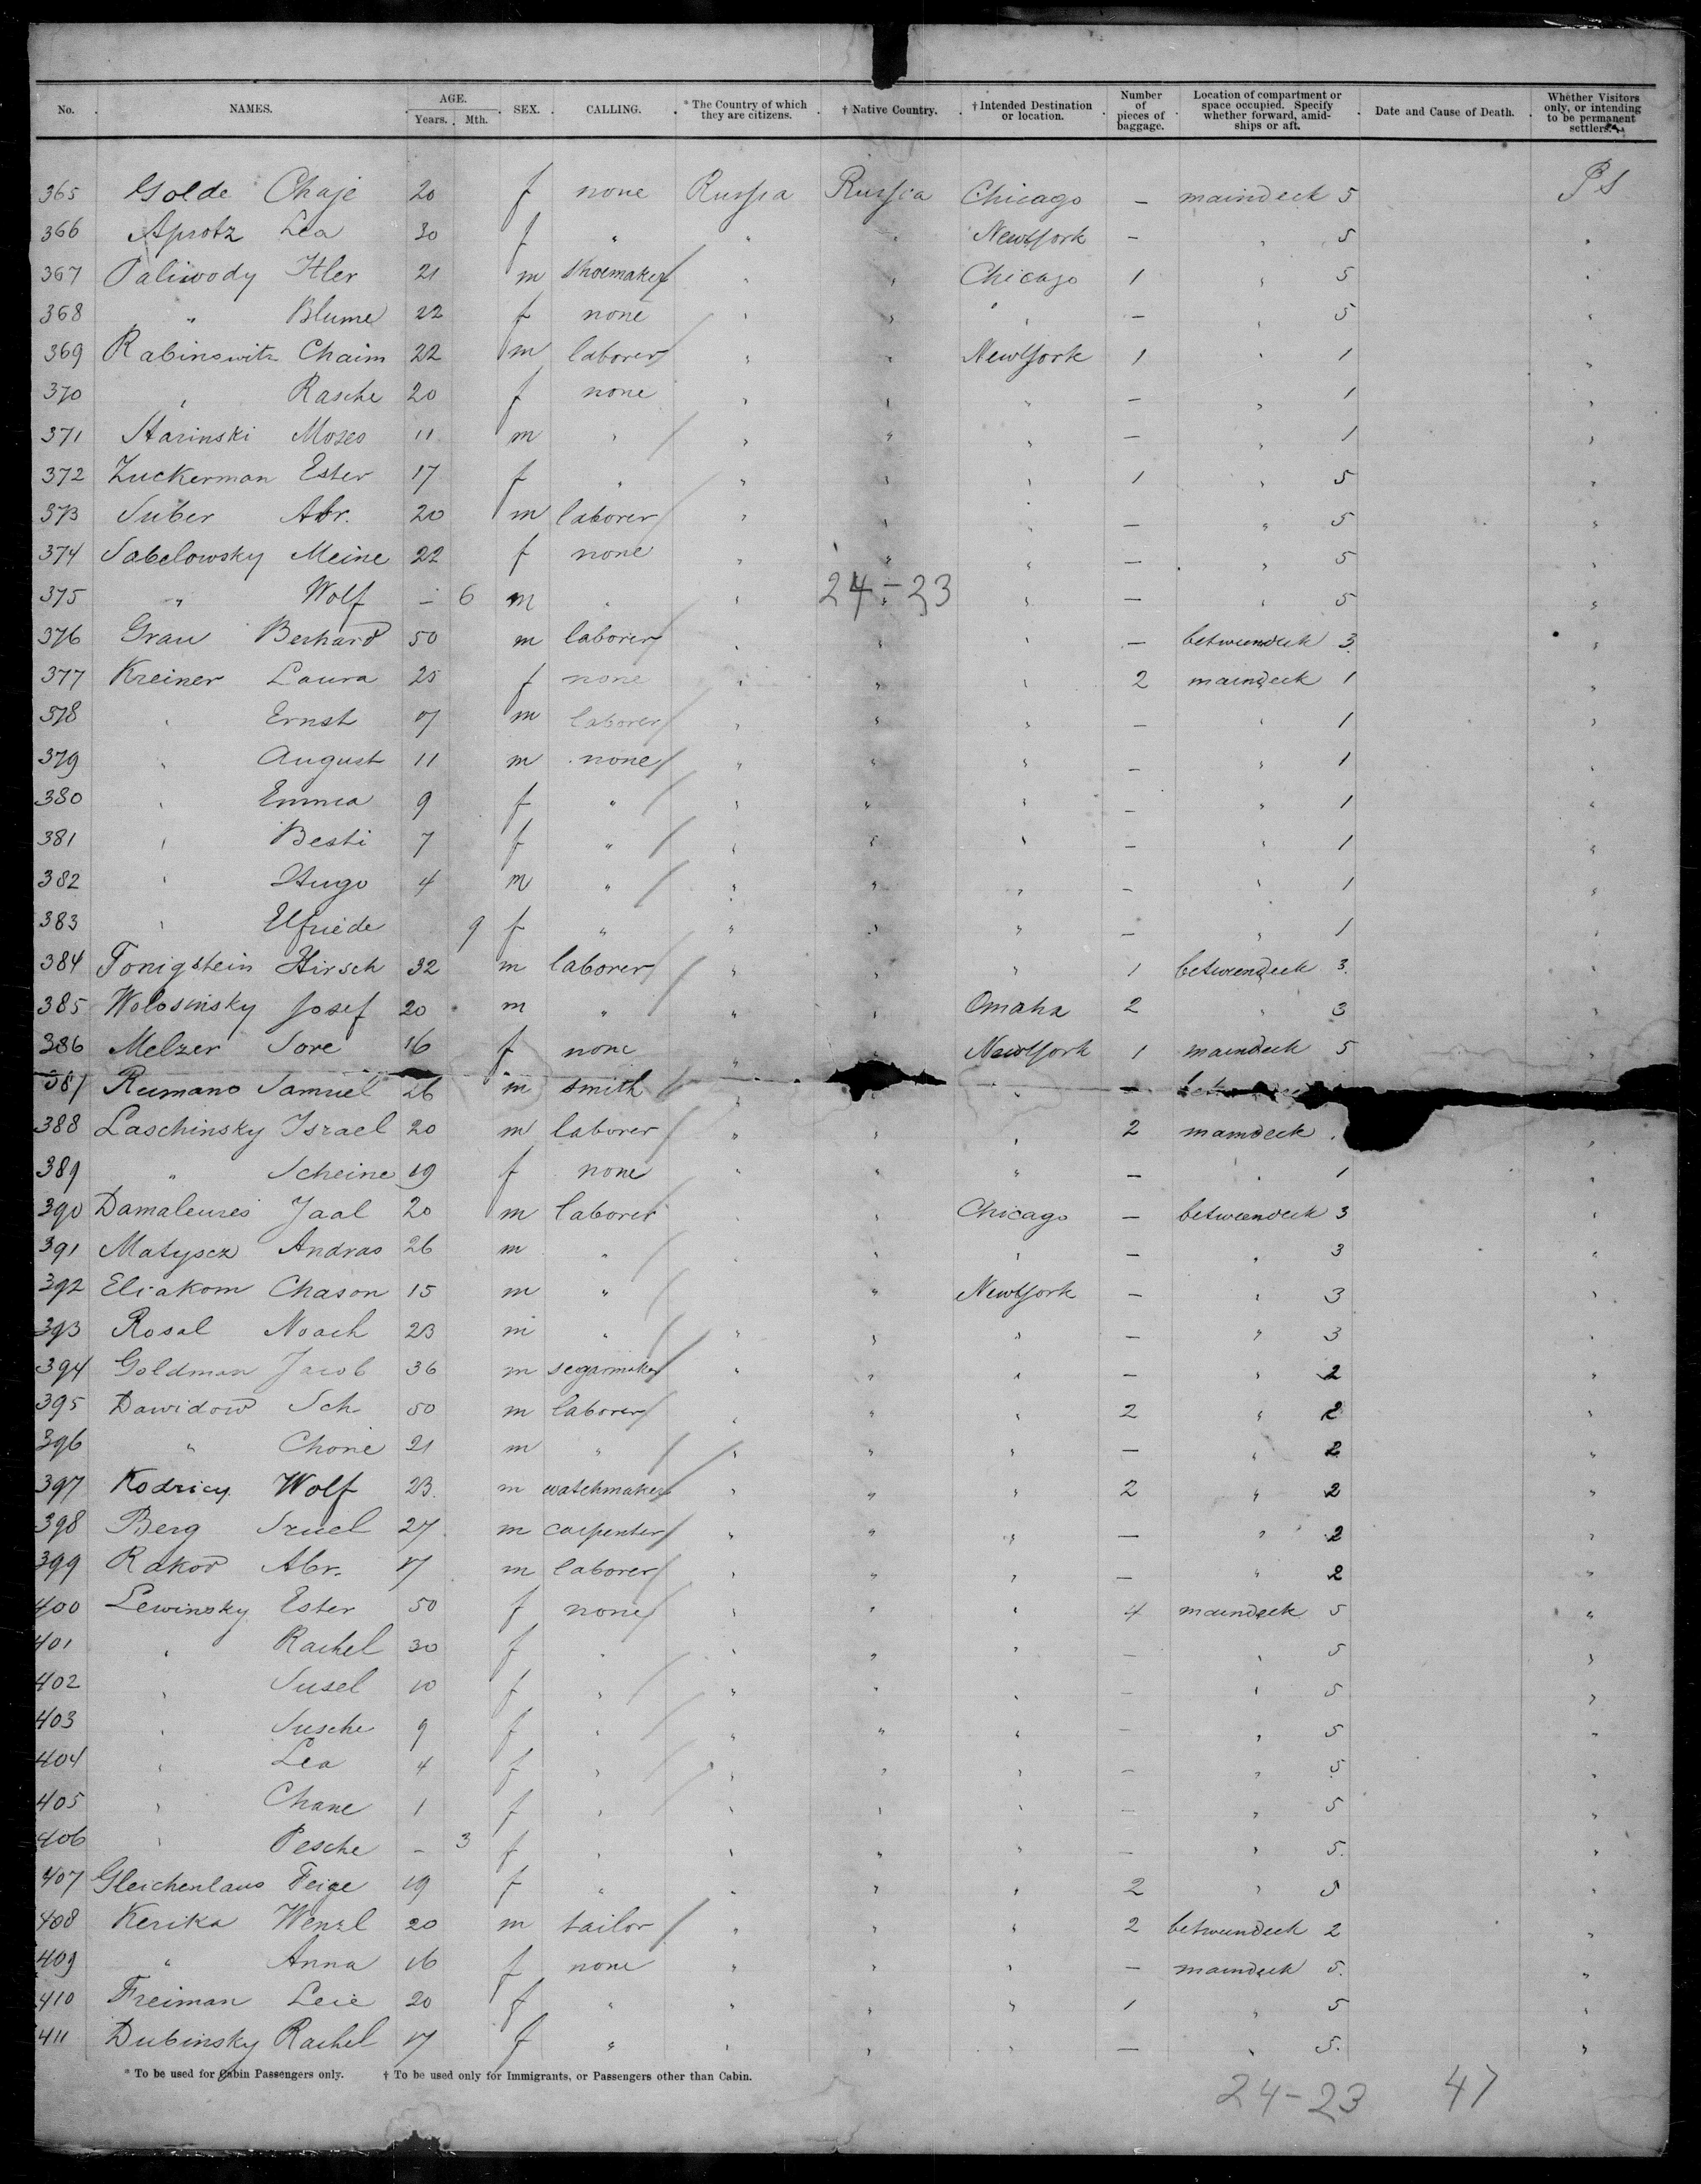 No. NAMES. AGE. Years. Mth. SEX. CALLING. * The Country of which they are citizens. † Native Country. † Intended Destination or location. Number of pieces of baggage. Location of compartment or space occupied. Specify whether forward, amidships or aft. Date and Cause of Death. Whether Visitors only, or intending to be permanent settlers.
365 Golde Chaje 20 f none Russia Russia Chicago - maindeck 5 PS
366 Aprotz Lea 30 f " " " NewYork - " 5 "
367 Paliwody Itler 21 m shoemaker " " Chicago 1 " 5 "
368 " Blume 22 f none " " " - " 5 "
369 Rabinowitz Chaim 22 m laborer " " NewYork 1 " 1 "
370 " Rasche 20 f none " " " - " 1 "
371 Starinski Moses 11 m " " " " - " 1 "
372 Zuckerman Ester 17 f " " " " 1 " 5 "
373 Suber Abr. 20 m laborer " " " - " 5 "
374 Sabelowsky Meine 22 f none " " " - " 5 "
375 " Wolf - 6 m " " " " - " 5 "
24-23
376 Grau Berhard 50 m laborer " " " - betweendeck 3 "
377 Kreiner Laura 25 f none " " " 2 maindeck 1 "
378 " Ernst 17 m laborer " " " - " 1 "
379 " August 11 m none " " " - " 1 "
380 " Emma 9 f " " " " - " 1 "
381 " Besti 7 f " " " " - " 1 "
382 " Hugo 4 m " " " " - " 1 "
383 " Elfriede 9 f " " " " - " 1 "
384 Tonigstein Hirsch 32 m laborer " " " 1 betweendeck 3. "
385 Wolosinsky Josef 20 m " " " Omaha 2 " 3 "
386 Melzer Sore 16 f none " " NewYork 1 maindeck 5 "
387 Rumano Samuel 26 m smith " " " -
388 Laschinsky Israel 20 m laborer " " " 2 maindeck "
389 " Scheine 19 f none " " " - " 1 "
390 Damaleures Jaal 20 m laborer " " Chicago - betweendeck 3 "
391 Matyscz Andras 26 m " " " " - " 3 "
392 Eliakom Chason 15 m " " NewYork - " 3 "
393 Rosal Noach 23 m " " " " - " 3 "
394 Goldman Jacob 36 m segarmaker " " " - " 2 "
395 Dawidow Sch 50 m laborer " " " 2 " 2 "
396 " Chone 21 m " " " " - " 2 "
397 Kodricy Wolf 23. m watchmaker " " " 2 " 2 "
398 Berg Sruel 27 m carpenter " " " - " 2 "
399 Rakow Abr. 17 m laborer " " " - " 2 "
400 Lewinsky Ester 50 f none " " " 4 maindeck 5 "
401 " Rachel 30 f " " " " - " 5 "
402 " Susel 10 f " " " " - " 5 "
403 " Susche 9 f " " " " - " 5 "
404 " Lea 4 f " " " " - " 5 "
405 " Chane 1 f " " " " - " 5 "
406 " Pesche - 3 f " " " " - " 5. "
407 Gleichenlaus Feige 19 f " " " " 2 " 5 "
408 Kerika Wenzl 20 m tailor " " " 2 betweendeck 2 "
409 " Anna 16 f none " " " - maindeck 5. "
410 Freiman Leie 20 f " " " " 1 " 5 "
411 Dubinsky Rachel 17 f " " " " - " 5. "
* To be used for Cabin Passengers only. † To be used only for Immigrants, or Passengers other than Cabin.
24-23 47